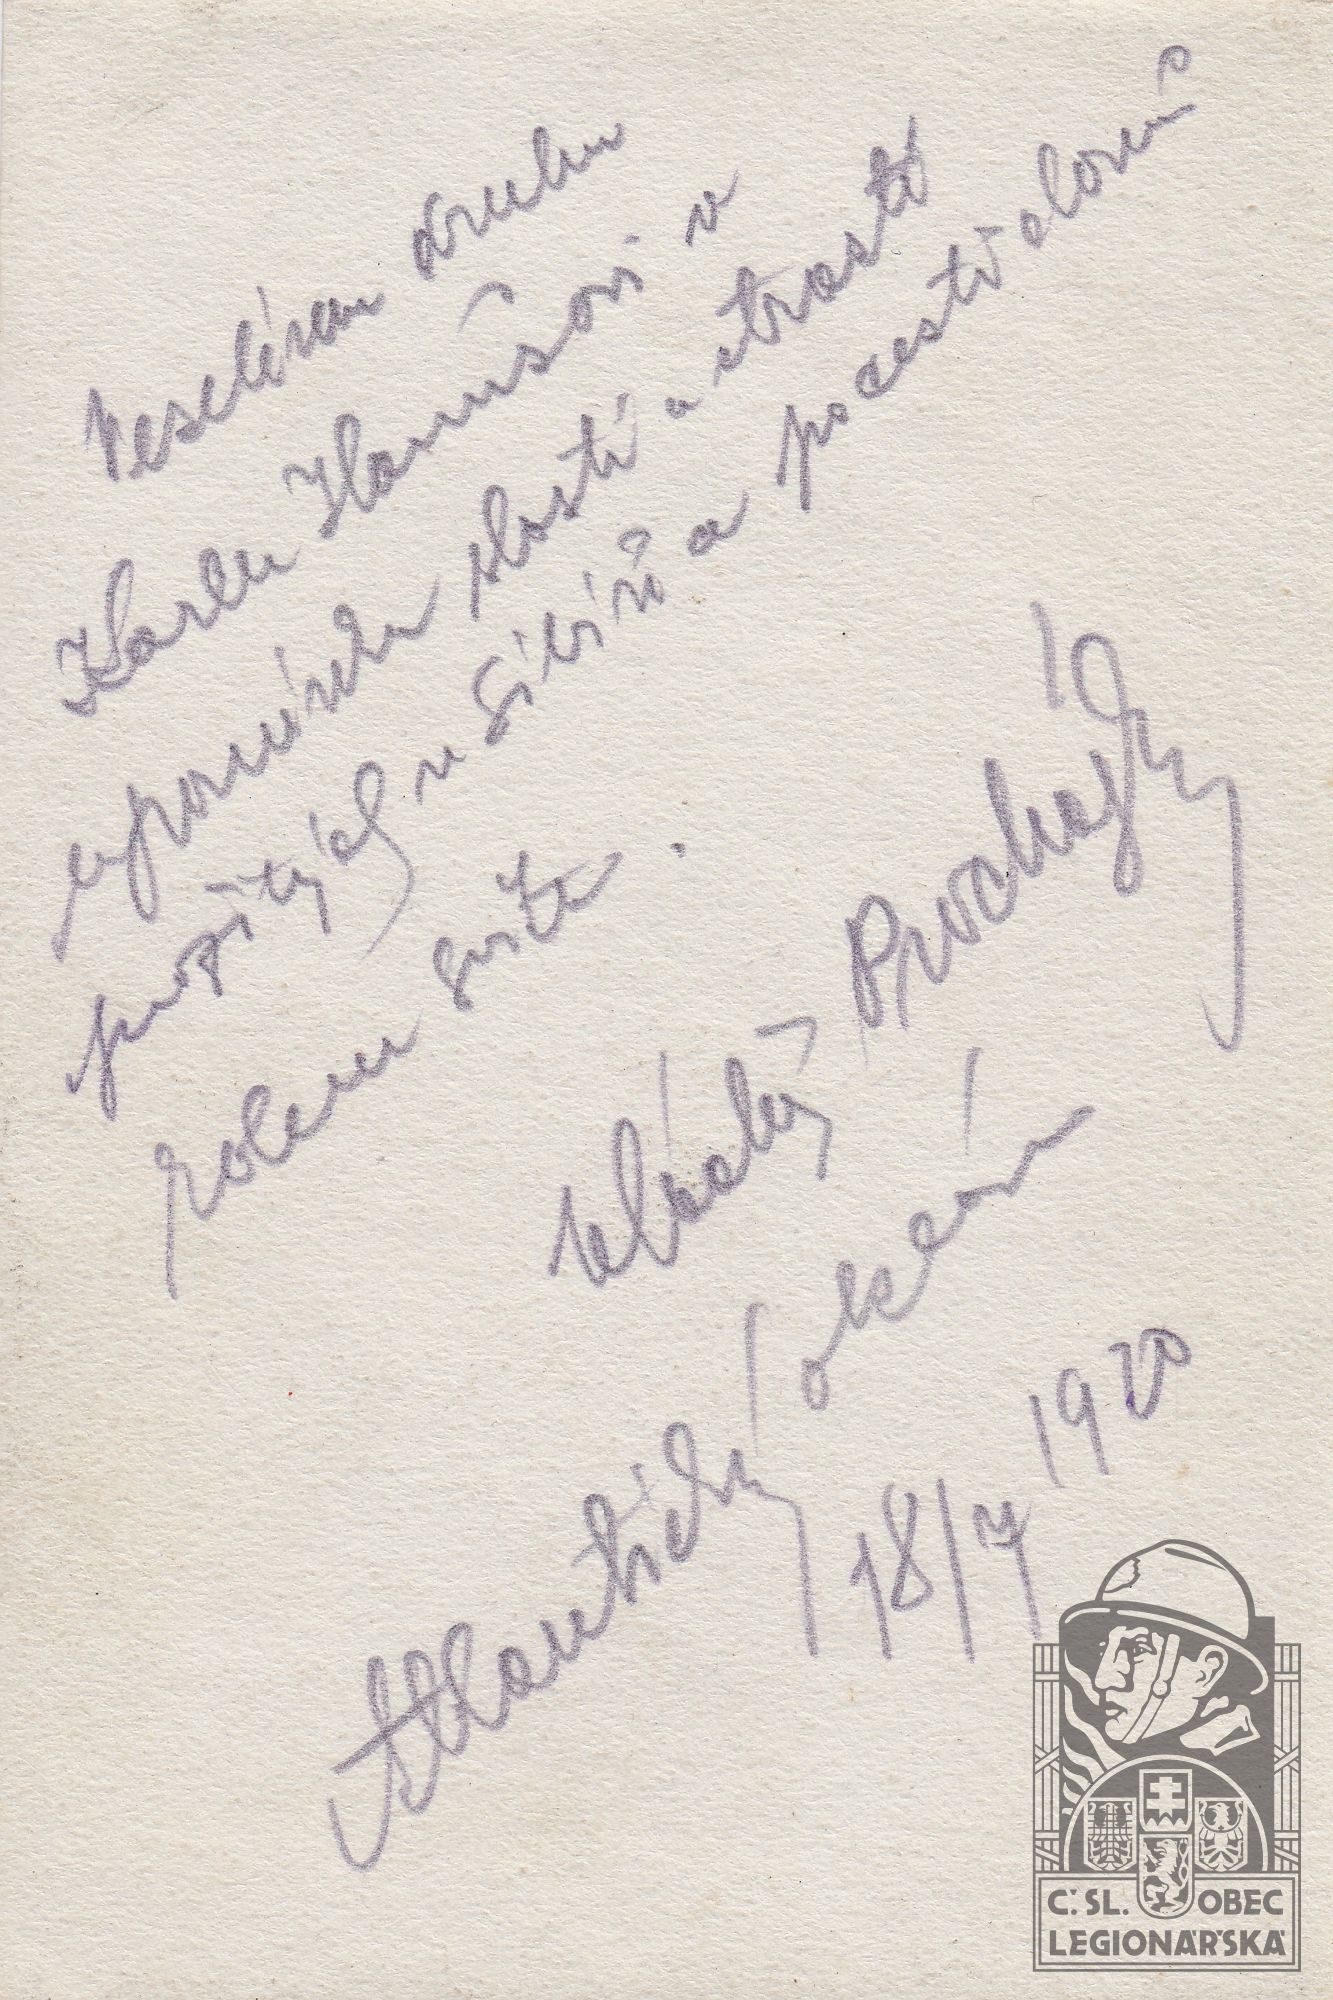 Veselému druhu
Karlu Hanušovi v
upomínku slastí a strastí
prožitých v Sibiři a po cestě
kolem světa.
Procházky
Atlantický okeán
18/7 1920
Č. SL. OBEC
LEGIONÁŘSKÁ